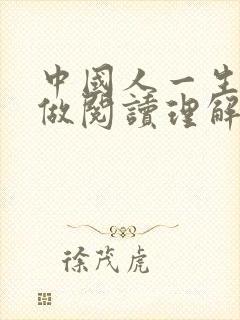 中國人一生
做閱讀理解
徐茂虎